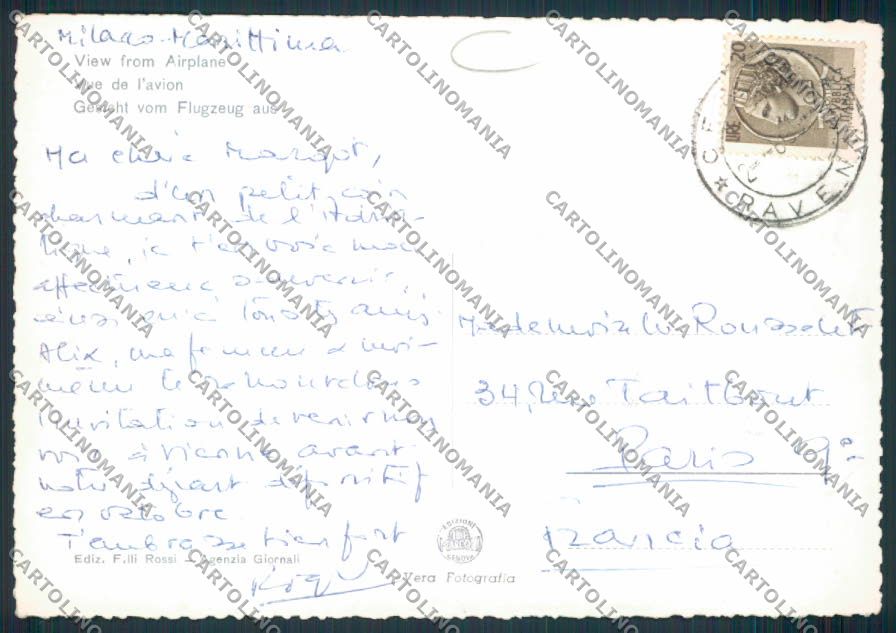 Milano Marittima
View from Airplane
Vue de l'avion
Gesicht vom Flugzeug aus
Ma chère Margot,
d'un petit coin
charmant de l'Adria-
tique, je t'envoie mes
affectueux souvenirs,
ainsi qu'à tous tes amis
Alix, ma femme & moi-
même te renouvelons
l'invitation de venir nous
voir à Vienne avant
notre départ définitif
en octobre.
T'embrasse bien fort
Ediz. F.lli Rossi - Agenzia Giornali
Vera Fotografia
EDIZIONI
GENOVA
Mademoiselle Rousselet
34, Rue Taitbout
Paris 9e
Francia
RAVENNA
CARTOLINOMANIA